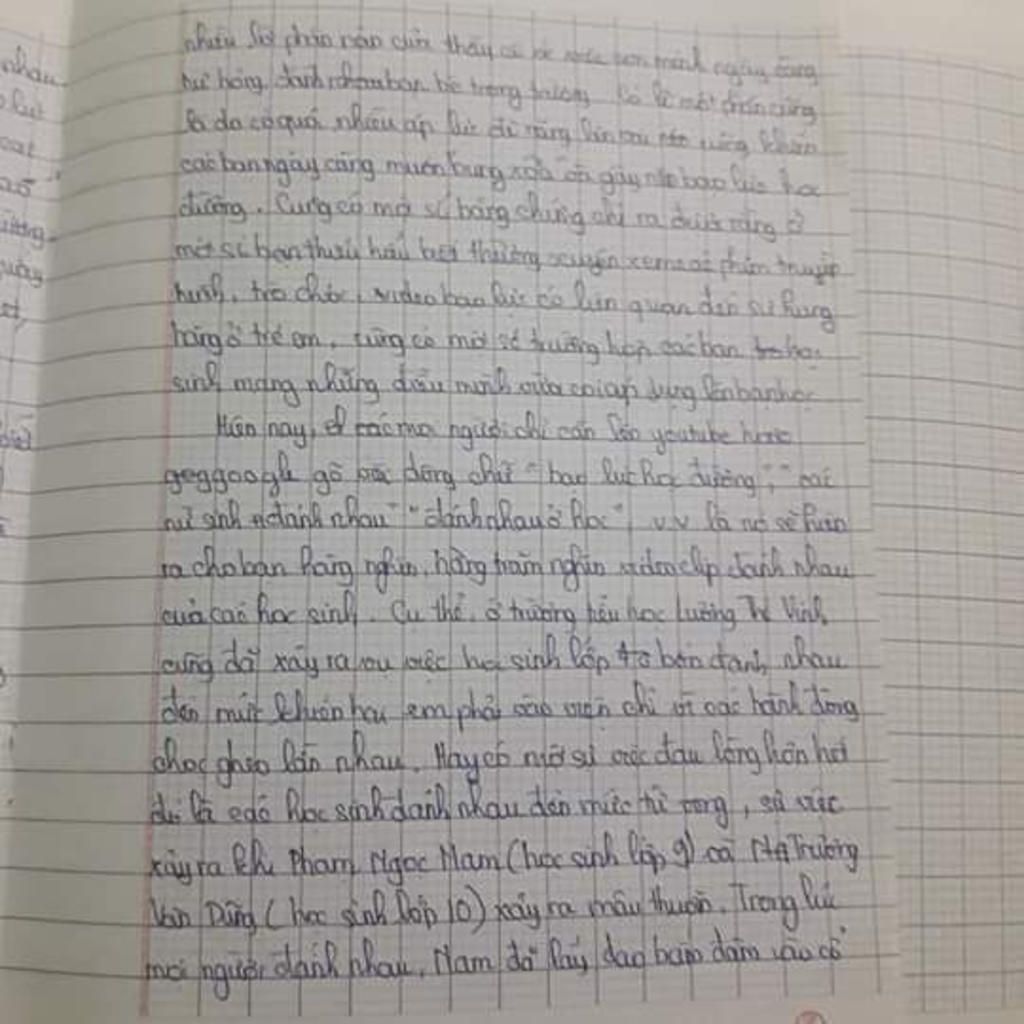 nhiều lời phàn nàn của thầy cô về việc con mình ngày càng
hư hỏng, đánh nhau bạn bè trong trường. Có lẽ một phần cũng
là do có quá nhiều áp lực đè nặng lên vai nên cũng khiến
các bạn ngày càng muốn bung xõa và gây nên bạo lực học
đường. Cũng có một số bằng chứng chỉ ra được rằng ở
một số bạn thiếu hiểu biết thường xuyên xem các phim truyền
hình, trò chơi, video bạo lực có liên quan đến sự hung
hăng ở trẻ em, cũng có một số trường hợp các bạn học
sinh mang những điều mình vừa coi áp dụng lên bạn học
Hiện nay, mọi người chỉ cần lên youtube hoặc
google gõ các dòng chữ "bạo lực học đường", "các
nữ sinh đánh nhau" "đánh nhau ở học", v.v là nó sẽ hiện
ra cho bạn hàng nghìn, hàng trăm nghìn video clip đánh nhau
của các học sinh. Cụ thể, ở trường tiểu học Lương Thế Vinh
cũng đã xảy ra vụ việc học sinh lớp bốn đánh nhau
đến mức khiến hai em phải vào viện chỉ vì các hành động
chọc ghẹo lẫn nhau. Hay có một sự việc đau lòng hơn hết
đó là học sinh đánh nhau đến mức tử vong, sự việc
xảy ra khi Phạm Ngọc Nam (học sinh lớp 9) và Trương
Văn Dũng (học sinh lớp 10) xảy ra mâu thuẫn. Trong lúc
mọi người đánh nhau, Nam đã lấy dao bấm đâm vào cổ